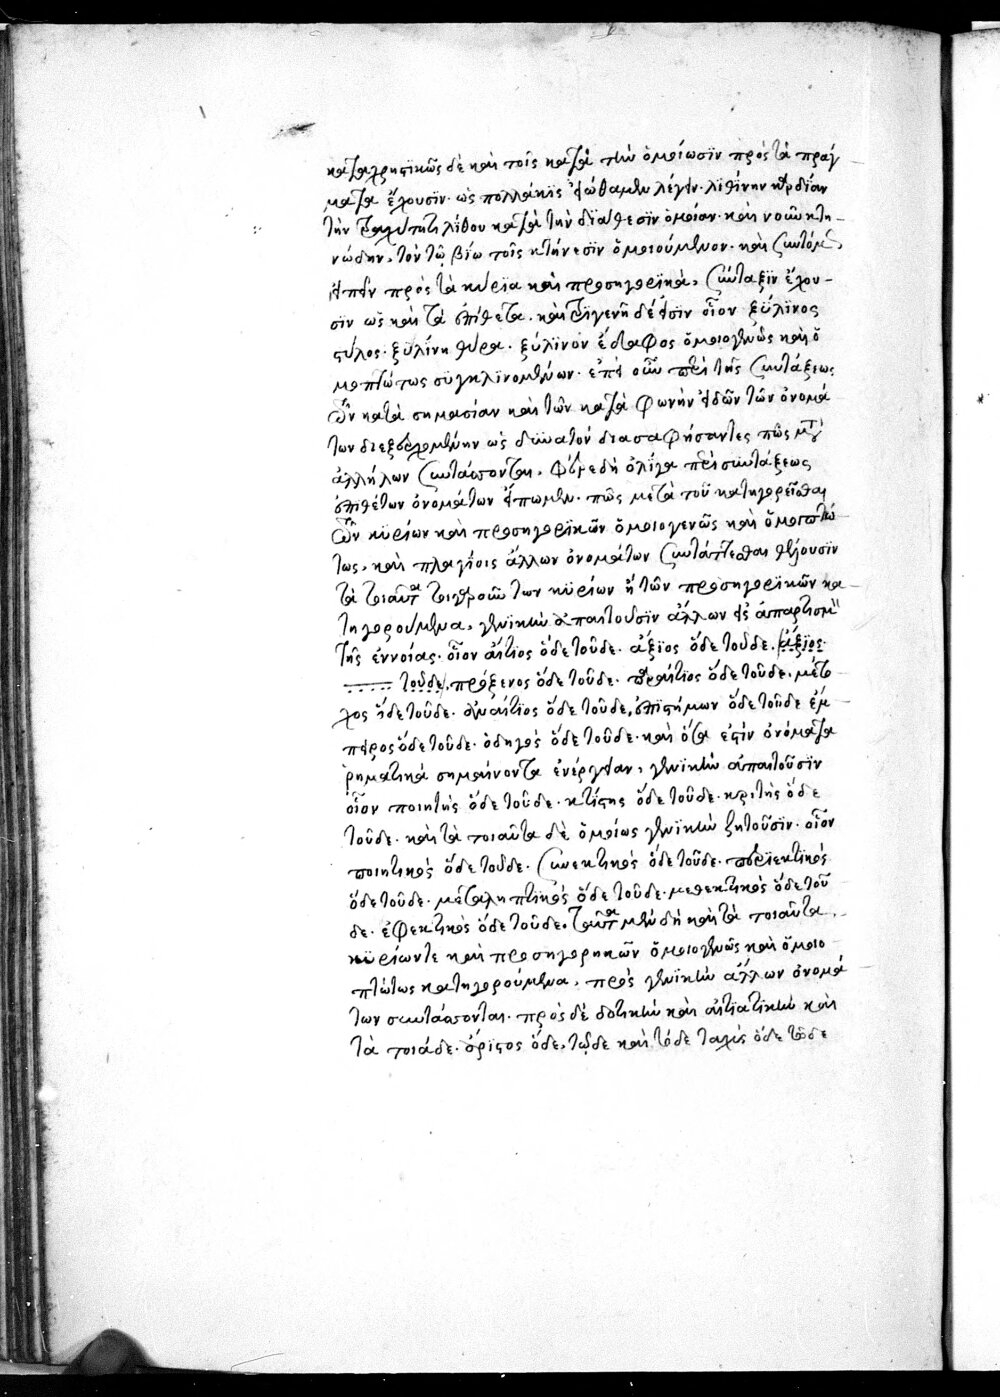 καταχρηστικῶς δὲ καὶ τοῖς κατὰ τὴν ὁμοίωσϊν πρὸς τὰ πράγ
ματα ἔχουσϊν. ὡς πολλάκις εἰώθαμεν λέγειν. λϊθίνην καρδίαν
τὴν λίθου κατὰ τὴν διάθεσϊν ὁμοίαν. καὶ νοῦν κτη-
νώδην, τὸν τῷ βίω τοῖς κτήνεσϊν ὁμοιούμενον. καὶ συντόμως
εἰπεῖν πρὸς τὰ κύρϊα καὶ προσηγορϊκὰ, σύνταξϊν ἔχου-
σϊν ὡς καὶ τὰ ἐπίθετα. καὶ τρϊγενῆ δέ εἰσϊν οἷον ξύλϊνος
στύλος. ξυλΐνη θύρα. ξύλϊνον ἔδαφος ὁμοιογενῶς καὶ ὁ
μοπτώτως συγκλϊνομένων. ἐπεὶ οὖν περὶ τῆς συντάξεως
τῶν κατὰ σημασίαν καὶ τῶν κατὰ φωνὴν εἰδῶν τῶν ὀνομά
των διεξερχομένην ὡς δυνατὸν διασαφήσαντες πῶς μετ'
ἀλλήλων συντάσσονται, φέρε δὴ ὀλΐγα περὶ συντάξεως
ἐπϊθέτων ὀνομάτων εἴπωμεν. πῶς μετὰ τοῦ κατηγορεῖσθαι
τῶν κϋρίων καὶ προσηγορϊκῶν ὁμοιογενῶς καὶ ὁμοιοπτώ
τως, καὶ πλαγΐοις ἄλλων ὀνομάτων συντάττεσθαι θέλουσϊν
τὰ τοιαῦτα τοιγαροῦν των κϋρίων ἢ τῶν προσηγορϊκῶν κα
τηγορούμενα, γενϊκὴν ἀπαιτοῦσϊν ἄλλων εἰς ἀπαρτισμὸν
τῆς ἐννοίας. οἷον αἴτϊος ὅδε τοῦδε. ἄξϊος ὅδε τοῦδε. ἄξϊος
τοῦδε, πρόξενος ὅδε τοῦδε. παραίτϊος ὅδε τοῦδε. μέτο
χος ἥδε τοῦδε. ἀναίτϊος ὅδε τοῦδε, ἐπϊστήμων ὅδε τοῦδε ἔμ
πειρος ὅδε τοῦδε. ὁδηγὸς ὅδε τοῦδε. καὶ ὅσα ἐστὶν ὀνόματα
ῥηματικὰ σημαίνοντα ἐνέργειαν, γενϊκὴν ἀπαιτοῦσϊν
οἷον ποιητὴς ὅδε τοῦδε. κτίστης ὅδε τοῦδε. κριτὴς ὅδε
τοῦδε. καὶ τὰ τοιαῦτα δὲ ὁμοίως γενϊκὴν ζητοῦσϊν. οἷον
ποιητικὸς ὅδε τοῦδε. συνεκτικὸς ὅδε τοῦδε. περϊεκτϊκὸς
ὅδε τοῦδε. μεταληπτϊκὸς ὅδε τοῦδε. μεθεκτικὸς ὅδε τοῦ
δε. ἐφεκτικὸς ὅδε τοῦδε. ταῦτα μὲν δὴ καὶ τὰ τοιαῦτα
κϋρίων τε καὶ προσηγορηκῶν ὁμοιογενῶς καὶ ὁμοιο
πτώτως κατηγορούμενα, πρὸς γενϊκὴν ἄλλων ὀνομά
των συντάσσονται. πρὸς δὲ δοτικὴν καὶ αἰτϊατϊκὴν καὶ
τὰ τοιάδε. ἄριστος ὅδε, τῷδε καὶ τόδε ταχὺς ὅδε τόδε